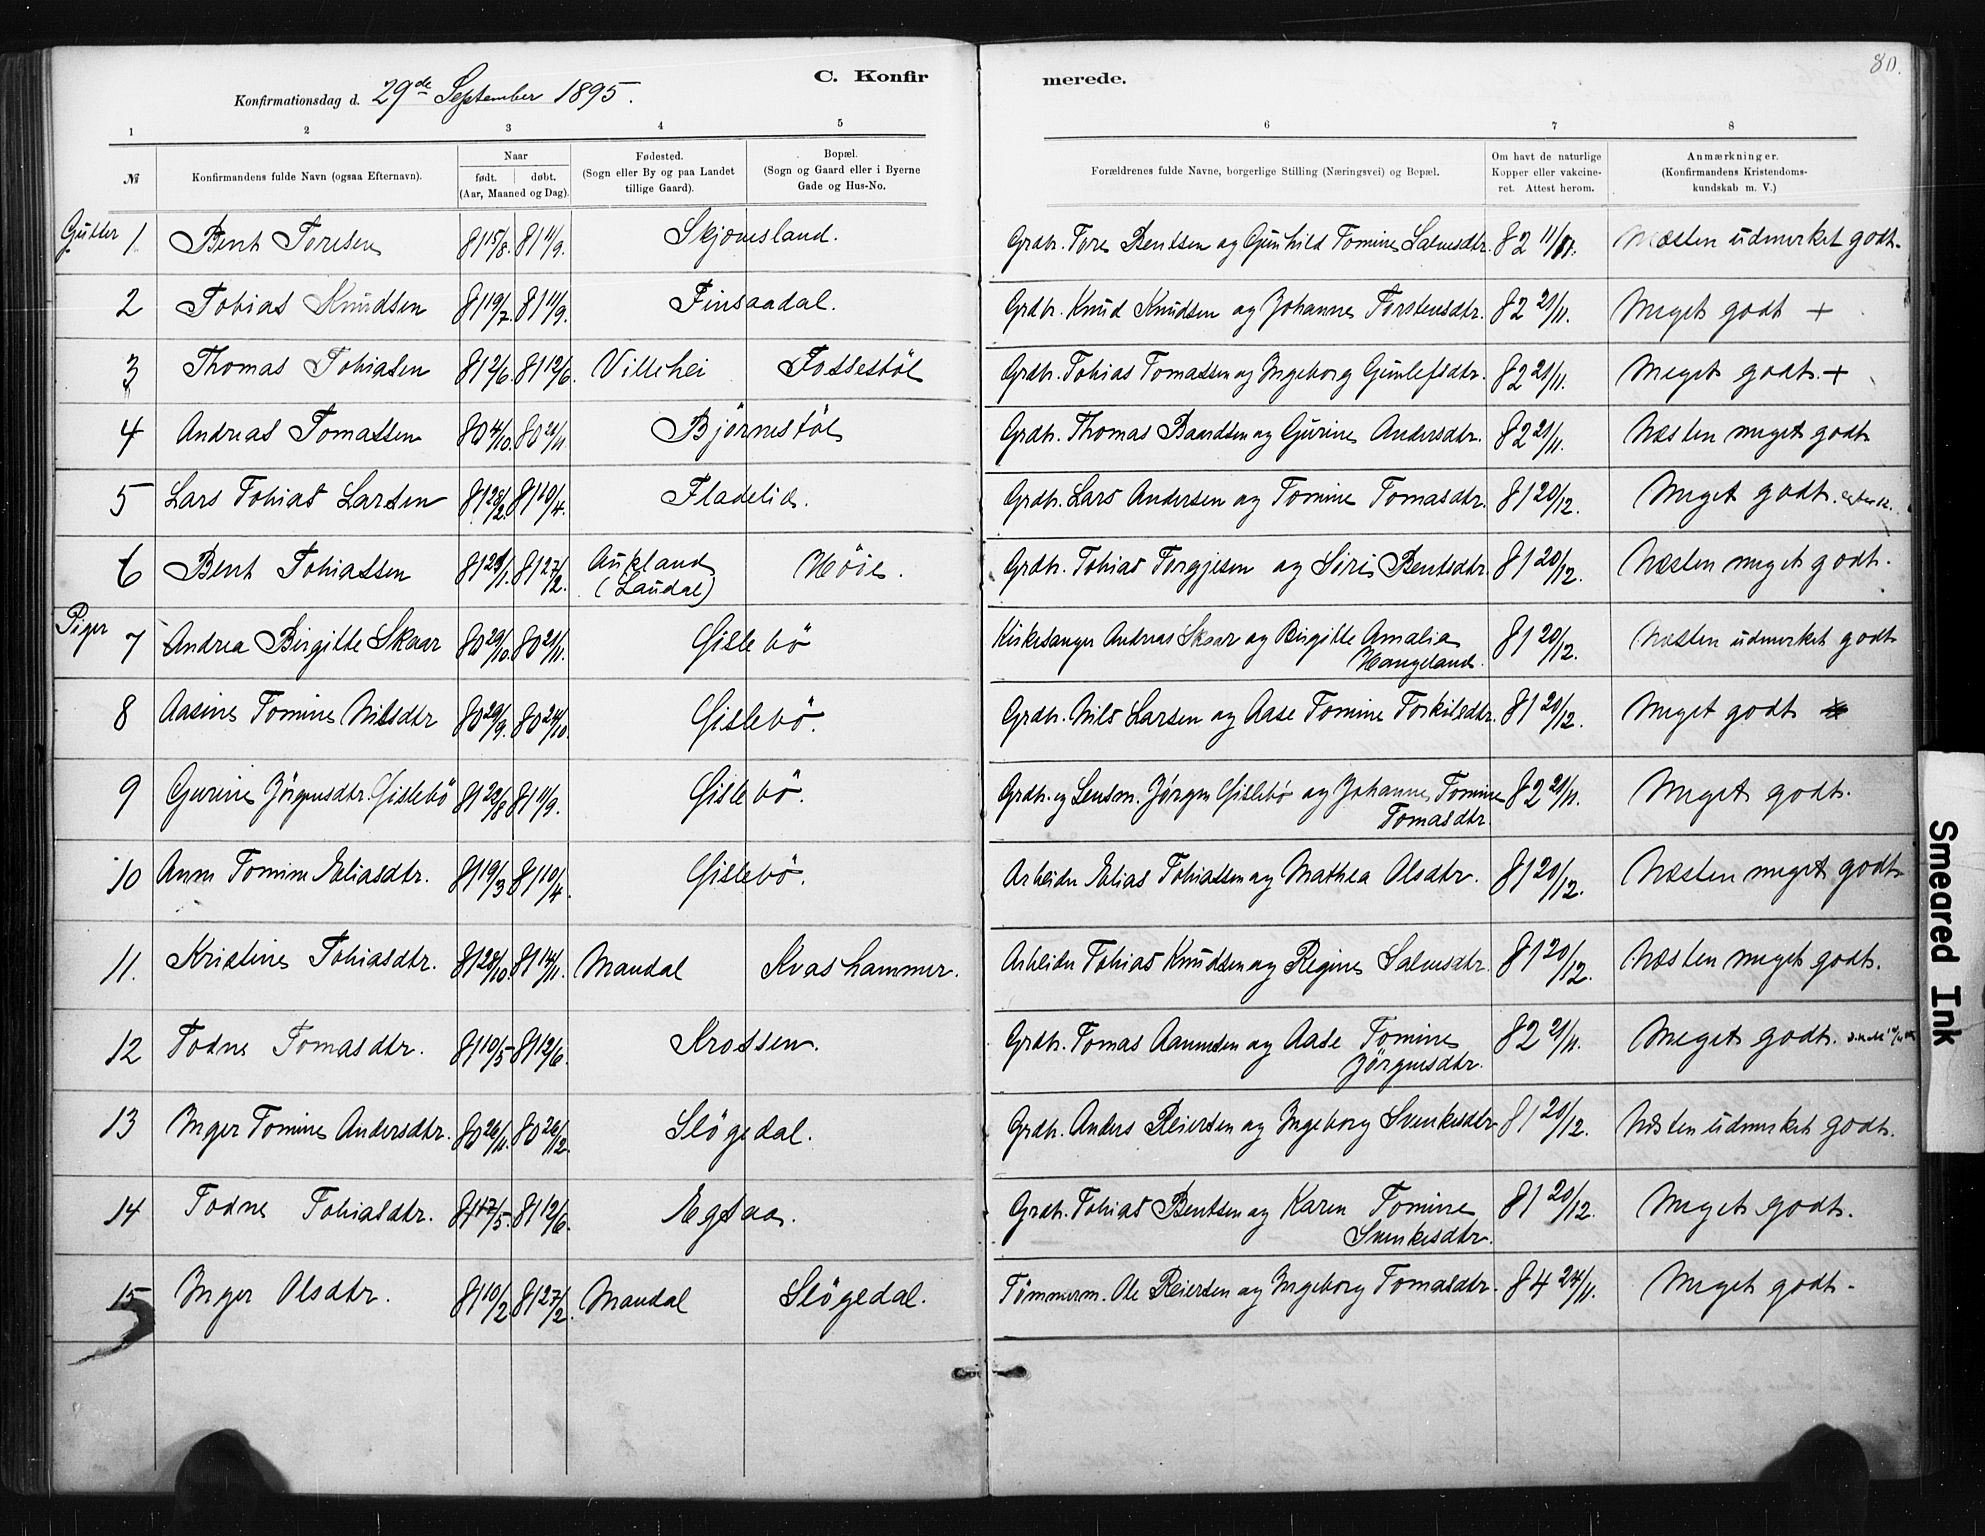 80.
C. Konfirmerede.
Konfirmationsdag d. 29de September 1895.
1 2 3 4 5 6 7 8
№ Konfirmandens fulde Navn (ogsaa Efternavn). Naar født. døbt. (Aar, Maaned og Dag). Fødested. (Sogn eller By og paa Landet tillige Gaard). Bopæl. (Sogn og Gaard eller i Byerne Gade og Hus-No. Forældrenes fulde Navne, borgerlige Stilling (Næringsvei) og Bopæl. Om havt de naturlige Kopper eller vakcineret. Attest herom. Anmærkninger. (Konfirmandens Kristendomskundskab m. V.)
Gutter 1. Bent Toresen 81 15/8. 81 11/9. Skjævesland. Grdbr. Tore Bentsen og Gunhild Tomine Salvesdtr. 82 11/11. Næsten udmerket godt.
2 Tobias Knudsen 81 19/7. 81 11/9. Finsaadal. Grdbr. Knud Knudsen og Johanne Torstensdtr. 82 21/11. Meget godt +
3 Thomas Tobiasen 81 2/6. 81 12/6. Villehei Fossestøl Grdbr. Tobias Tomassen og Ingeborg Gunlefsdtr. 82 21/11. Meget godt. +
4 Andreas Tomassen 80 4/10. 80 21/11 Bjørnestøl Grdbr. Thomas Baardsen og Gurine Andersdtr. 82 21/11. Næsten meget godt
5 Lars Tobias Larsen 81 28/2. 81 10/4. Fladelid. Grdbr. Lars Andersen og Tomine Tomasdtr. 81 20/12. Meget godt.
6 Bent Tobiassen 81 29/1. 81 27/2. Aukland (Laudal) Høie. Grdbr. Tobias Torgjesen og Siri Bentsdtr. 81 20/12. Næsten meget godt.
Piger 7 Andrea Birgitte Skaar 80 29/10. 80 21/11. Gislebø Kirkesanger Andreas Skaar og Birgitte Amalia Haugeland. 81 20/12. Næsten udmerket godt
8 Aasine Tomine Nilsdtr 80 29/9. 80 24/10. Gislebø. Grdbr. Nils Larsen og Aase Tomine Torkilsdtr. 81 20/12. Meget godt
9 Gurine Jörgensdtr. Gislebö 81 23/8 81 11/9. Gislebø. Grdbr. og Lensm. Jørgen Gislebø og Johanne Tomine Tomasdtr. 82 21/11. Meget godt.
10 Anne Tomine Eliasdtr. 81 19/3 81 10/4. Gislebø. Arbeider Elias Tobiassen og Mathea Olsdtr. 81 20/12. Næsten meget godt
11. Kristine Tobiasdtr. 81 28/10. 81 14/11. Mandal Kvashammer. Arbeider Tobias Knudsen og Regine Salvesdtr. 81 20/12. Næsten meget godt.
12 Todne Tomasdtr. 81 10/5 81 12/6. Krossen. Grdbr. Tomas Aanensen og Aase Tomine Jörgensdtr. 82 21/11. Meget godt.
13 Inger Tomine Andersdtr. 80 26/11. 80 26/12. Sløgedal. Grdbr. Anders Reiersen og Ingeborg Svenkesdtr 81 20/12. Næsten udmerket godt.
14 Todne Tobiasdtr. 81 17/5. 81 12/6. Egsaa. Grdbr. Tobias Bentsen og Karen Tomine Svenkesdtr. 81 20/12. Meget godt.
15 Inger Olsdtr. 81 10/2 81 27/2. Mandal Sløgedal. Tømmerm. Ole Reiersen og Ingeborg Tomasdtr. 84 24/11. Meget godt.
Smeared Ink